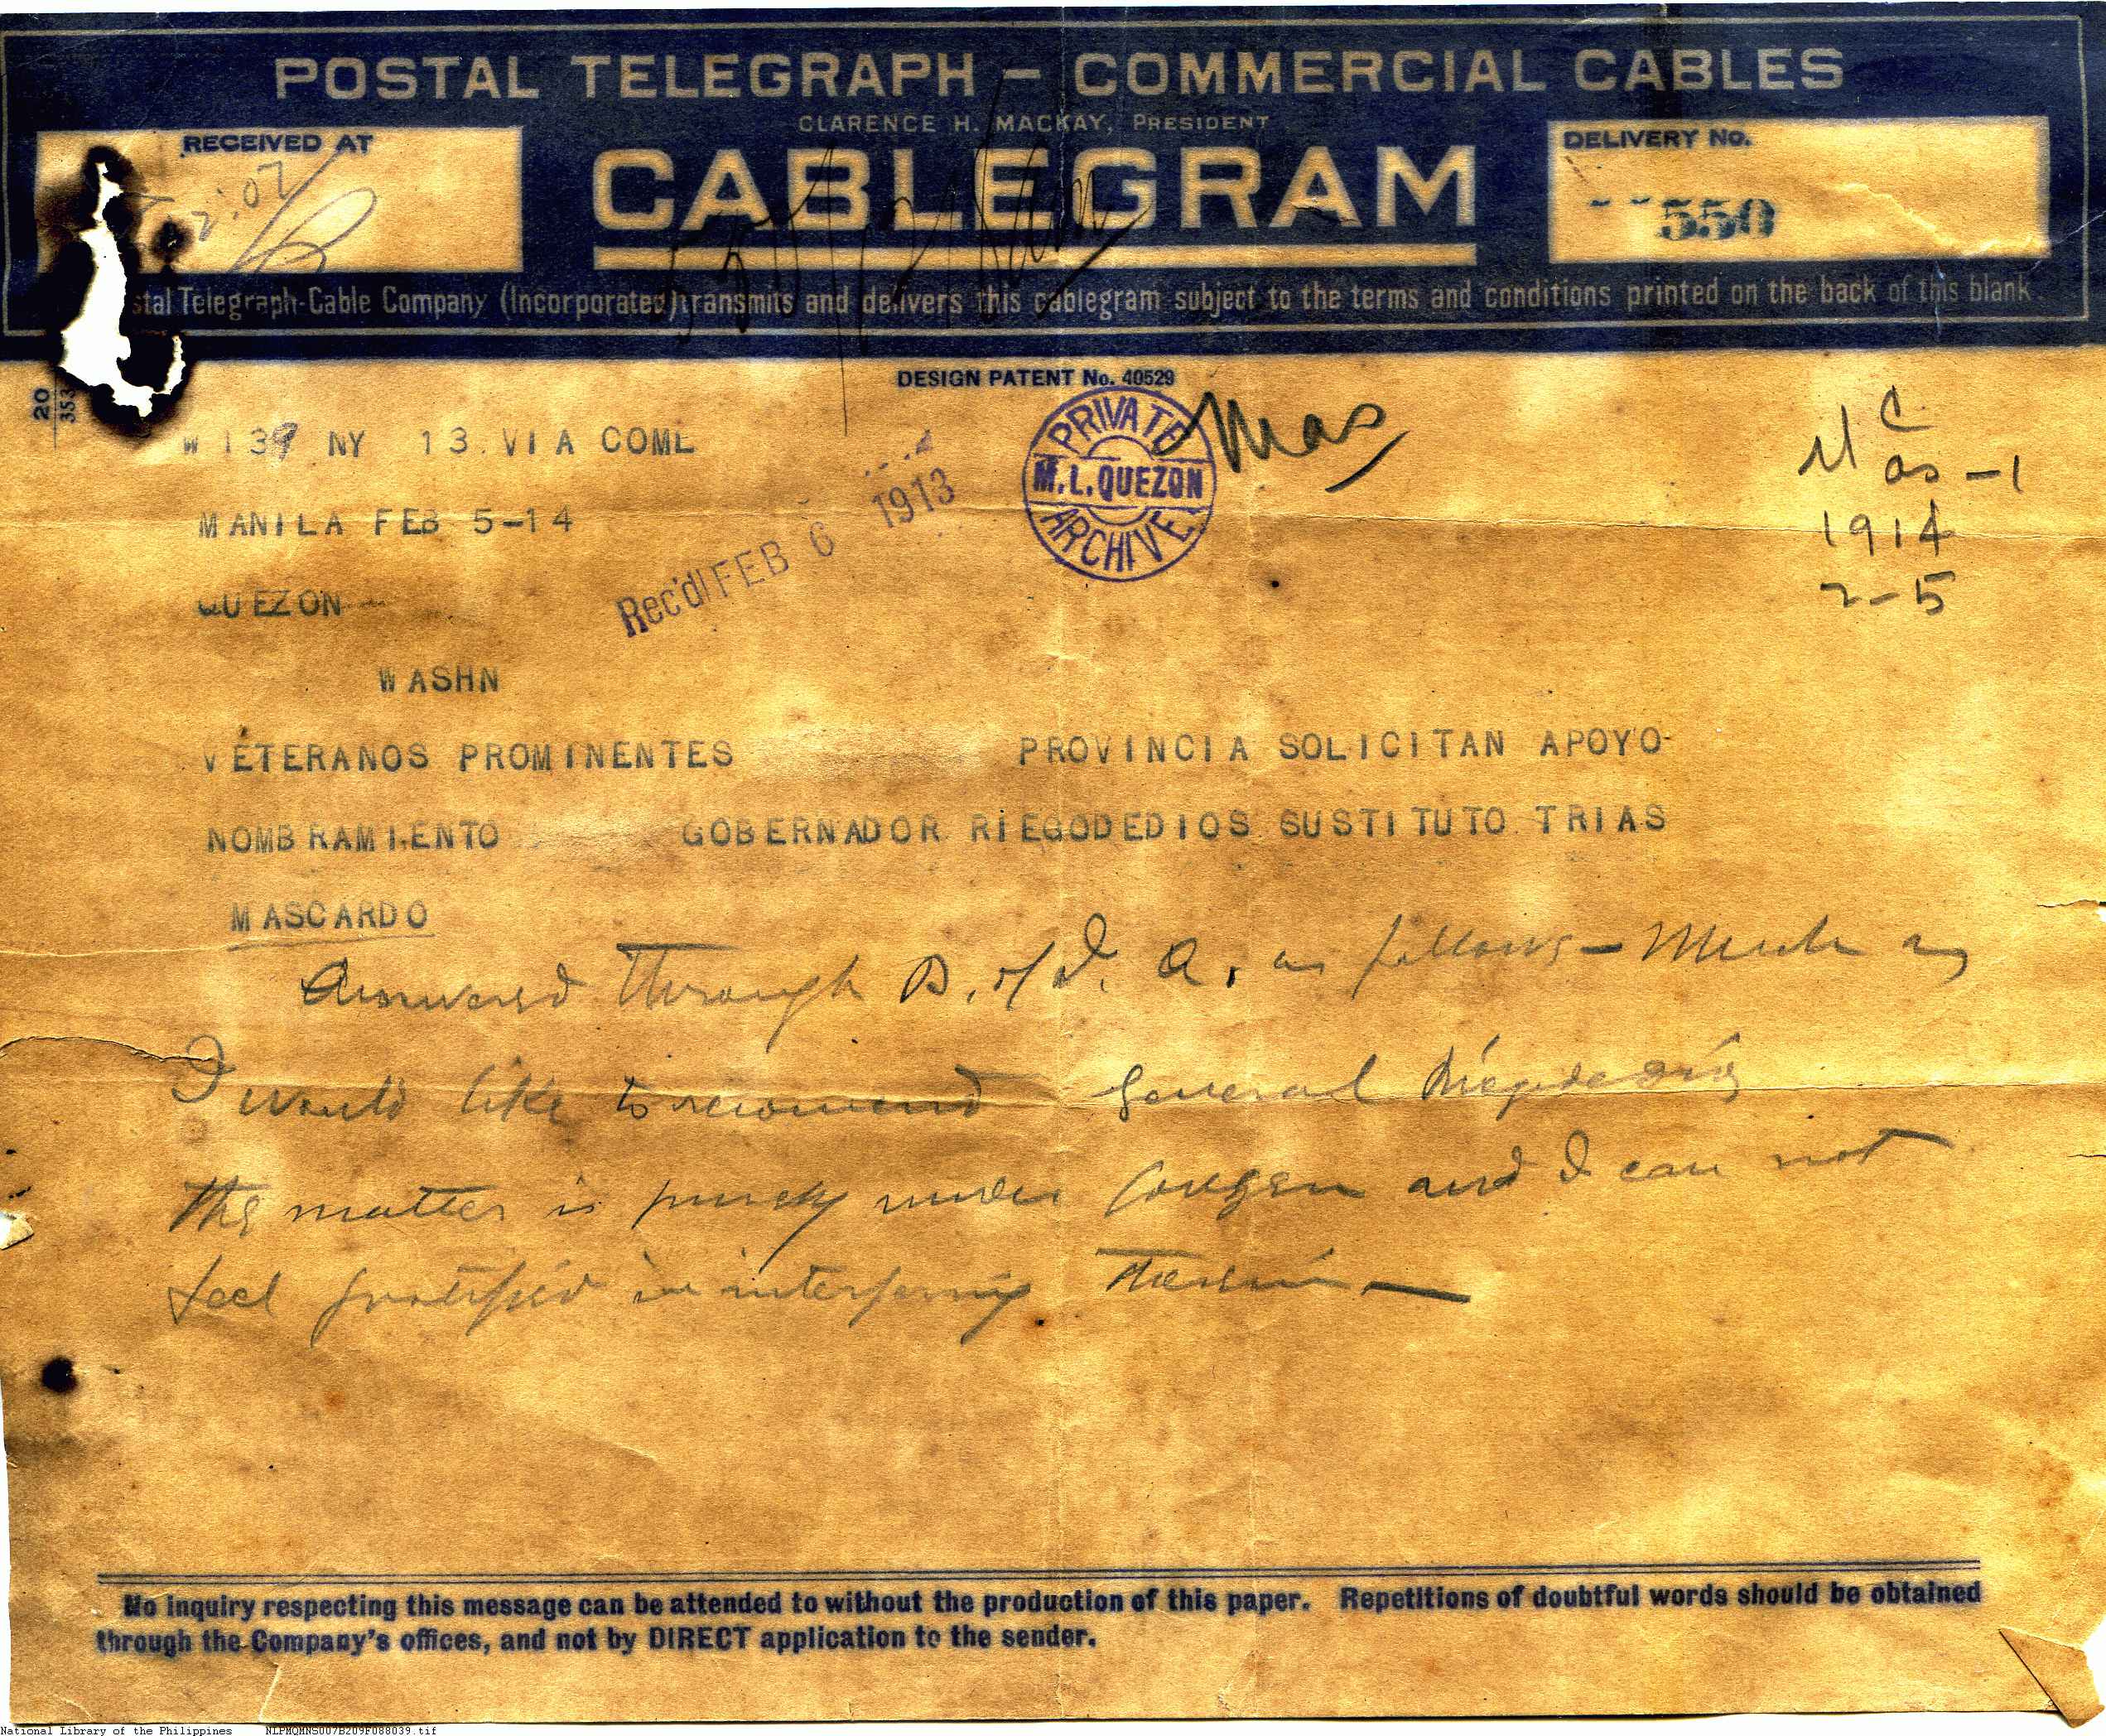 POSTAL TELEGRAPH - COMMERCIAL CABLES
CLARENCE H. MACKAY, PRESIDENT
RECEIVED AT
CABLEGRAM
DELIVERY No.
550
stal Telegraph-Cable Company (Incorporated) transmits and delivers this cablegram subject to the terms and conditions printed on the back of this blank.
DESIGN PATENT No. 40529
20
353
PRIVATE
M. L. QUEZON
ARCHIVE
Mas
C
M as-1
1914
2-5
W 139 NY 13 VIA COML
MANILA FEB 5-14
Rec'd FEB 6 1913
QUEZON
WASHN
VETERANOS PROMINENTES PROVINCIA SOLICITAN APOYO
NOMBRAMIENTO GOBERNADOR RIEGODEDIOS SUSTITUTO TRIAS
MASCARDO
Answered through B. of I. A. as follows - Much as
I would like to recommend General Riegodedios
the matter is purely under and I can not
feel in interfering therein -
No inquiry respecting this message can be attended to without the production of this paper. Repetitions of doubtful words should be obtained
through the Company's offices, and not by DIRECT application to the sender.
National Library of the Philippines NLPMQMNS007B209F088039.tif